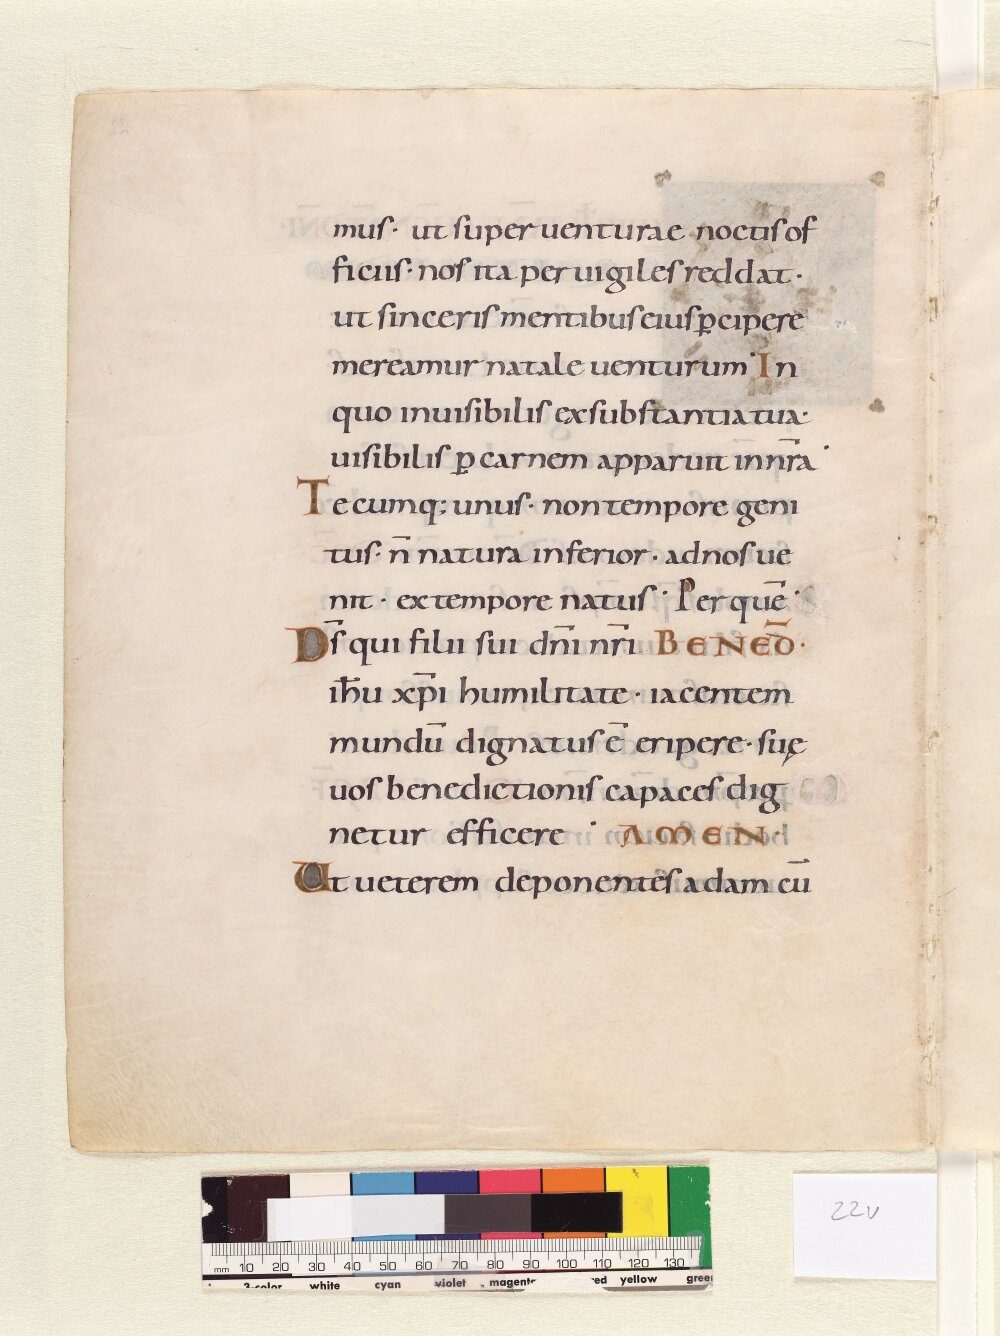 mus· ut super uenturae noctis of
ficiis· nos ita peruigiles reddat·
ut sinceris mentibus eius p̱cipere
mereamur natale uenturum· In
quo inuisibilis ex substantia tua·
uisibilis p̱ carnem apparuit in nr̄a·
Tecumq; unus· non tempore geni
tus· n̄ natura inferior· ad nos ue
nit· ex tempore natus· Per quē·
D̄s qui filii sui dn̄i nr̄i BENED̄·
ih̄u xp̄i humilitate· iacentem
mundū dignatus ē eripere· suę
uos benedictionis capaces dig
netur efficere· AMEN·
Ut ueterem deponentes adam cū
22v
mm 10 20 30 40 50 60 70 80 90 100 110 120 130
3-color white cyan violet magenta red yellow green